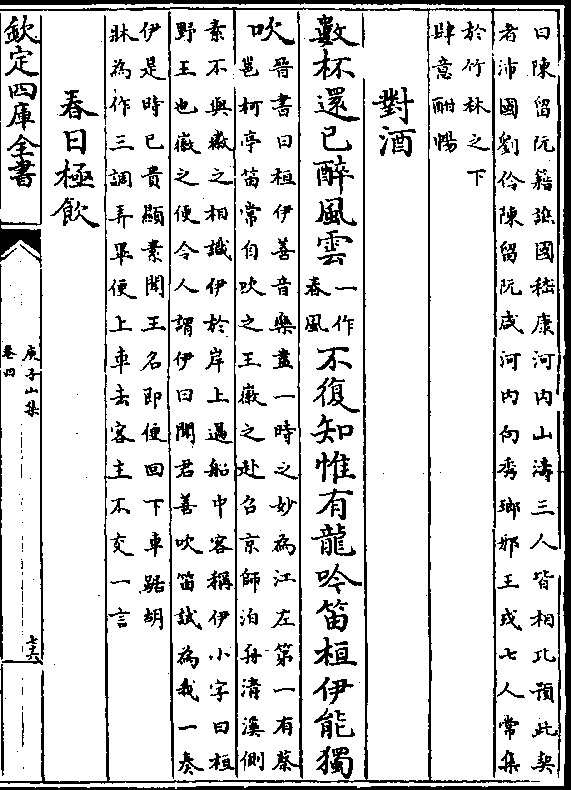 曰陳留阮籍譙國嵇康河内山濤三人皆相比預此契
者沛國劉伶陳留阮咸河内向秀瑯邪王戎七人常集
於竹林之下
肆意酣暢
對酒
數杯還已醉風雲
一作
春風
不復知惟有龍吟笛桓伊能獨
吹
晉書曰桓伊善音樂盡一時之妙為江左第一有蔡
邕柯亭笛常自吹之王徽之赴召京師泊舟清溪側
素不與徽之相識伊於岸上過船中客稱伊小字曰桓
野王也徽之便令人謂伊曰聞君善吹笛試為我一奏
伊是時已貴顯素聞王名即便回下車踞胡
牀為作三調弄畢便上車去客主不交一言
春日極飲
欽定四庫全書
庾子山集
卷四
七六